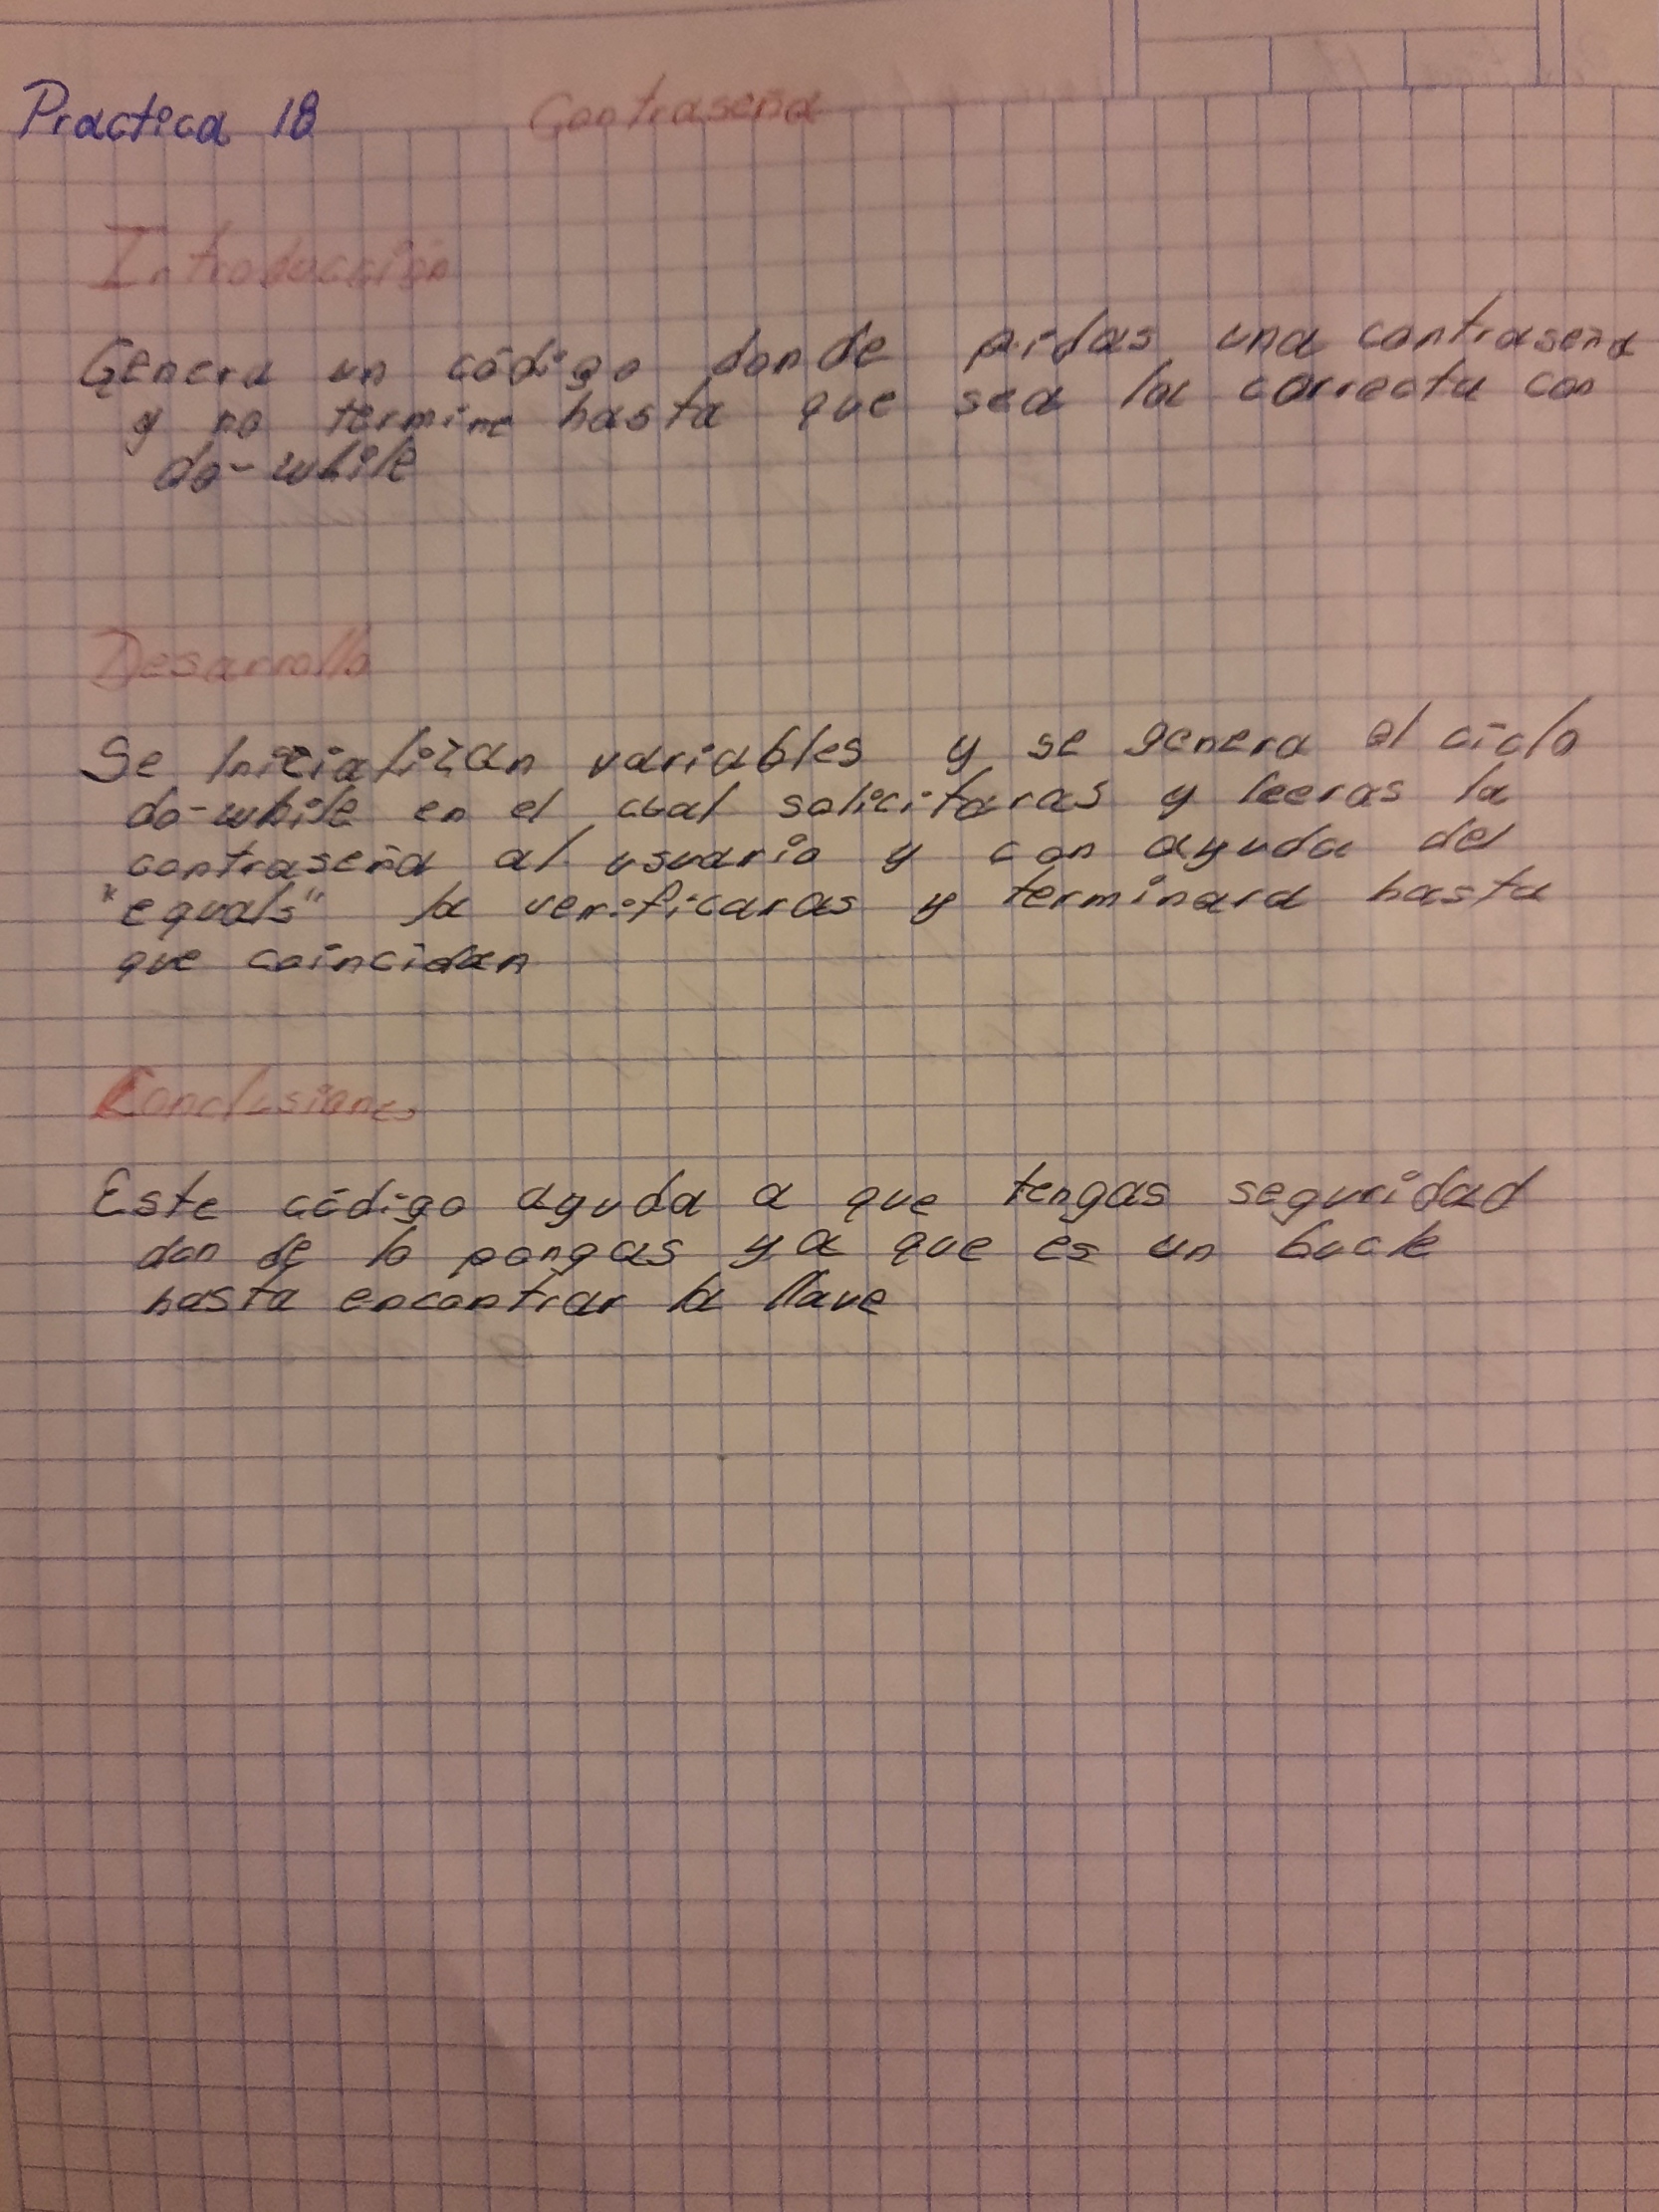 Practica 18 Contraseña
Introducción
Genera un código donde pidas una contraseña
y no termine hasta que sea la correcta con
do-while
Desarrollo
Se Inicializan variables y se genera el ciclo
do-while en el cual solicitaras y leeras la
contraseña al usuario y con ayuda del
"equals" la verificaras y terminara hasta
que coincidan
Conclusiones
Este código ayuda a que tengas seguridad
don de lo pongas ya que es un bucle
hasta encontrar la llave